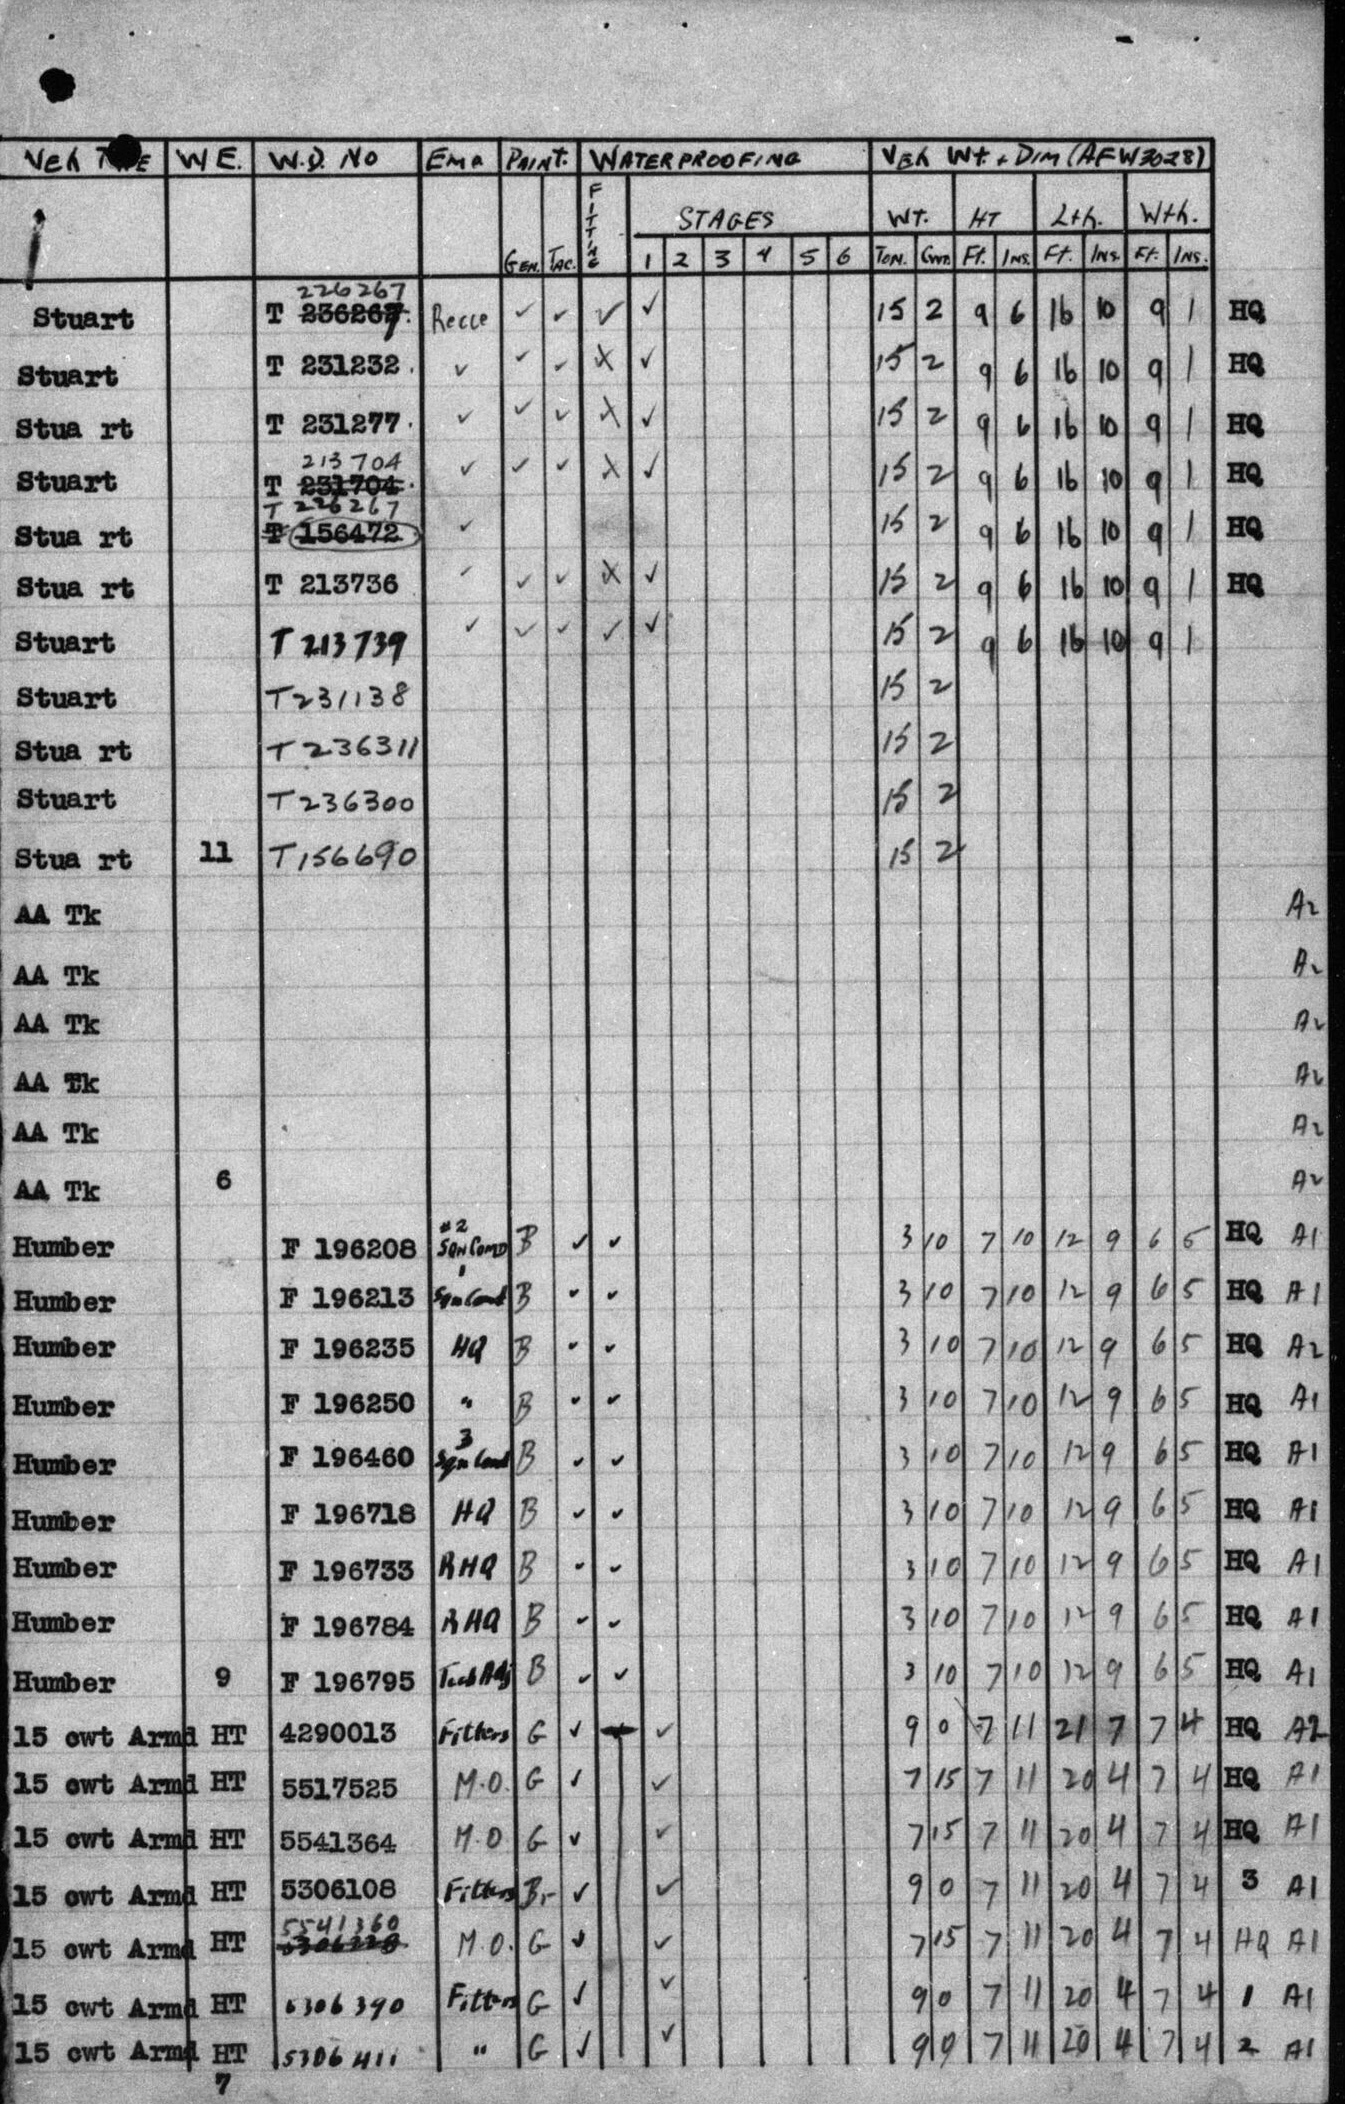 Veh Type W E. W.D. No Emp PAINT. WATERPROOFING VEH Wt. + DIM (AFW3028)
FITTING STAGES WT. HT Lth. Wth.
GEN. TAC. 1 2 3 4 5 6 TON. Cwt. Ft. INS. Ft. INS. Ft. INS.
226267
Stuart T 236267. Recce ✓ ✓ ✓ ✓ 15 2 9 6 16 10 9 1 HQ
Stuart T 231232. ✓ ✓ ✓ X ✓ 15 2 9 6 16 10 9 1 HQ
Stua rt T 231277. ✓ ✓ ✓ X ✓ 15 2 9 6 16 10 9 1 HQ
213704
Stuart T 231704. ✓ ✓ ✓ X ✓ 15 2 9 6 16 10 9 1 HQ
T 226267
Stua rt T 156472 ✓ 15 2 9 6 16 10 9 1 HQ
Stua rt T 213736 ✓ ✓ ✓ X ✓ 15 2 9 6 16 10 9 1 HQ
Stuart T 213739 ✓ ✓ ✓ ✓ ✓ 15 2 9 6 16 10 9 1
Stuart T231138 15 2
Stua rt T236311 15 2
Stuart T236300 15 2
Stua rt 11 T156690 15 2
AA Tk A2
AA Tk A2
AA Tk A2
AA Tk A2
AA Tk A2
AA Tk 6 A2
#2
Humber F 196208 Sqn Comd B ✓ ✓ 3 10 7 10 12 9 6 5 HQ A1
1
Humber F 196213 Sqn Comd B ✓ ✓ 3 10 7 10 12 9 6 5 HQ A1
Humber F 196235 HQ B ✓ ✓ 3 10 7 10 12 9 6 5 HQ A2
Humber F 196250 " B ✓ ✓ 3 10 7 10 12 9 6 5 HQ A1
3
Humber F 196460 Sqn Comd B ✓ ✓ 3 10 7 10 12 9 6 5 HQ A1
Humber F 196718 HQ B ✓ ✓ 3 10 7 10 12 9 6 5 HQ A1
Humber F 196733 RHQ B ✓ ✓ 3 10 7 10 12 9 6 5 HQ A1
Humber F 196784 RHQ B ✓ ✓ 3 10 7 10 12 9 6 5 HQ A1
Humber 9 F 196795 Tech Adj B ✓ ✓ 3 10 7 10 12 9 6 5 HQ A1
15 cwt Armd HT 4290013 Fitters G ✓ ✓ 9 0 7 11 21 7 7 4 HQ A2
15 cwt Armd HT 5517525 M.O. G ✓ ✓ 7 15 7 11 20 4 7 4 HQ A1
15 cwt Armd HT 5541364 M.O G ✓ ✓ 7 15 7 11 20 4 7 4 HQ A1
15 cwt Armd HT 5306108 Fitters Br ✓ ✓ 9 0 7 11 20 4 7 4 3 A1
5541360
15 cwt Armd HT M.O. G ✓ ✓ 7 15 7 11 20 4 7 4 HQ A1
15 cwt Armd HT 5306390 Fitters G ✓ ✓ 9 0 7 11 20 4 7 4 1 A1
15 cwt Armd HT 5306411 " G ✓ ✓ 9 0 7 11 20 4 7 4 2 A1
7